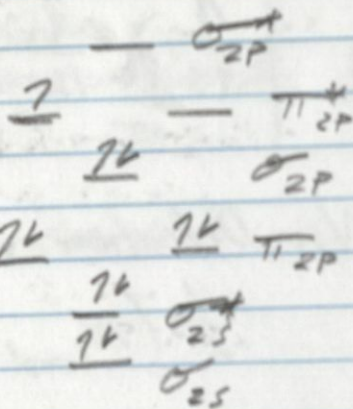 — σ*2p
↿ — π*2p
↿⇂ σ2p
↿⇂ ↿⇂ π2p
↿⇂ σ*2s
↿⇂ σ2s